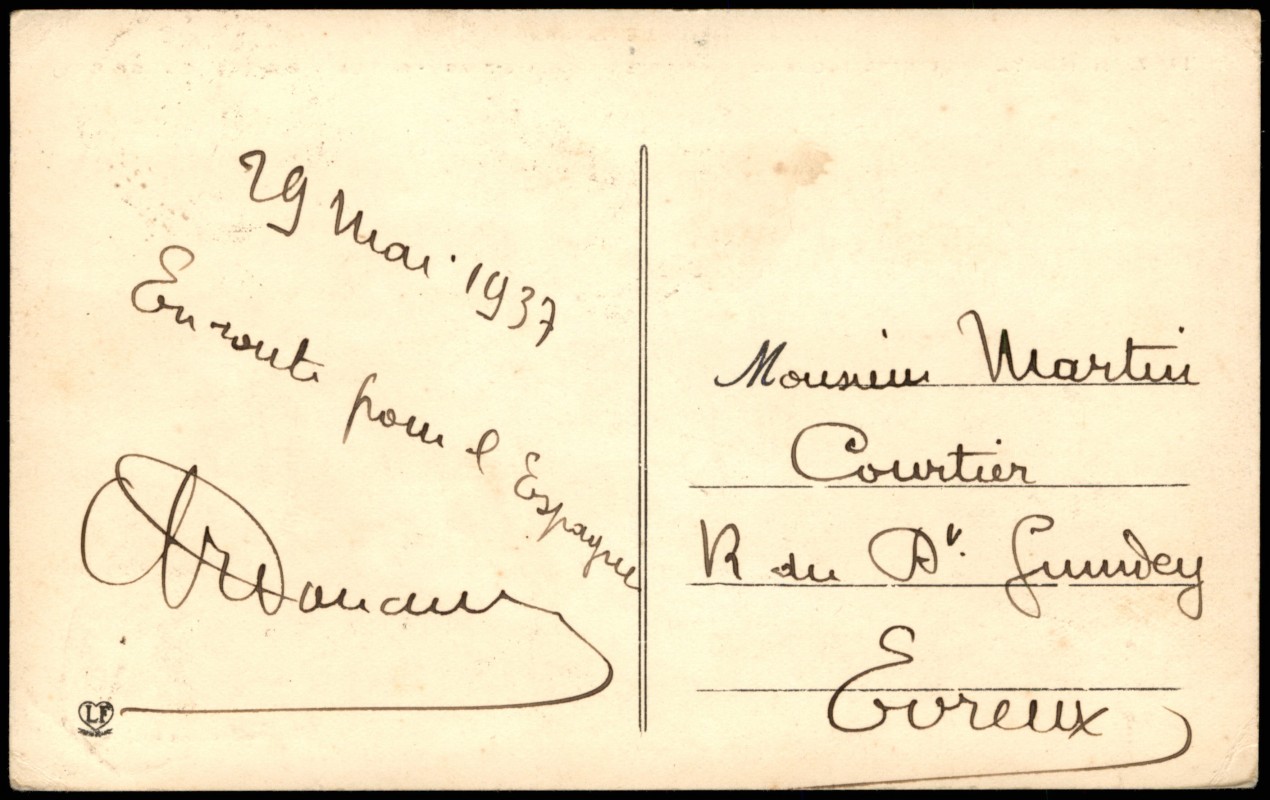 29 Mai 1937
En route pour l'Espagne
LF
Monsieur Martin
Courtier
R du Dr
Evreux